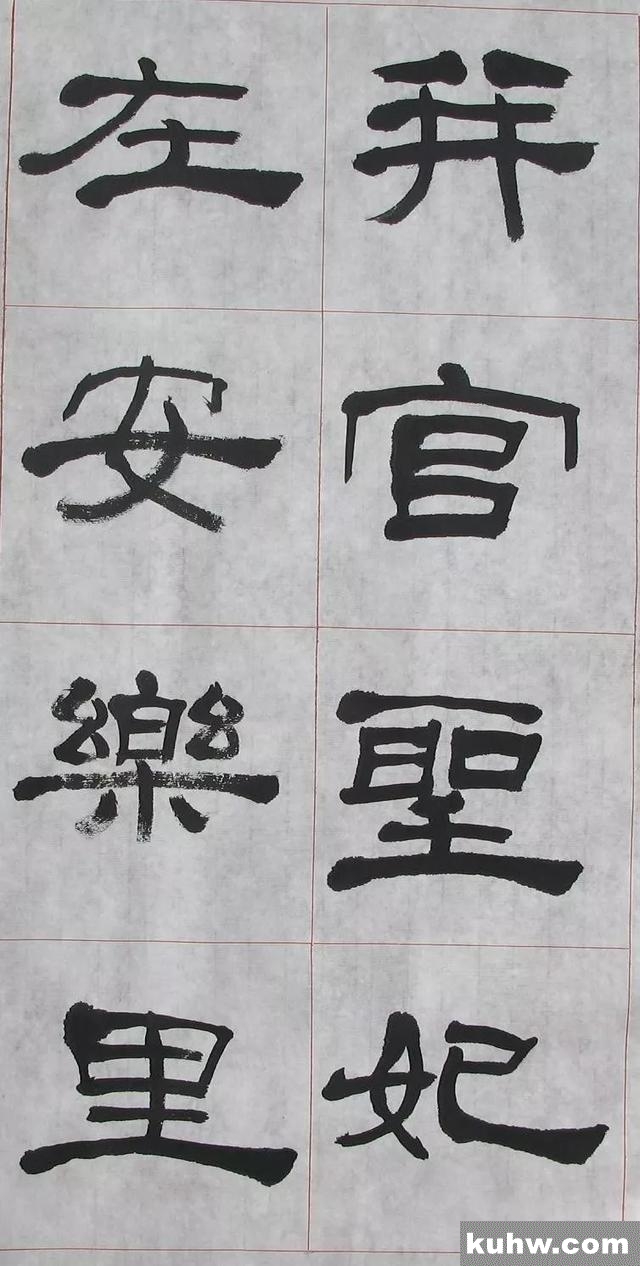 并官聖妃
在安樂里
kuhw.com